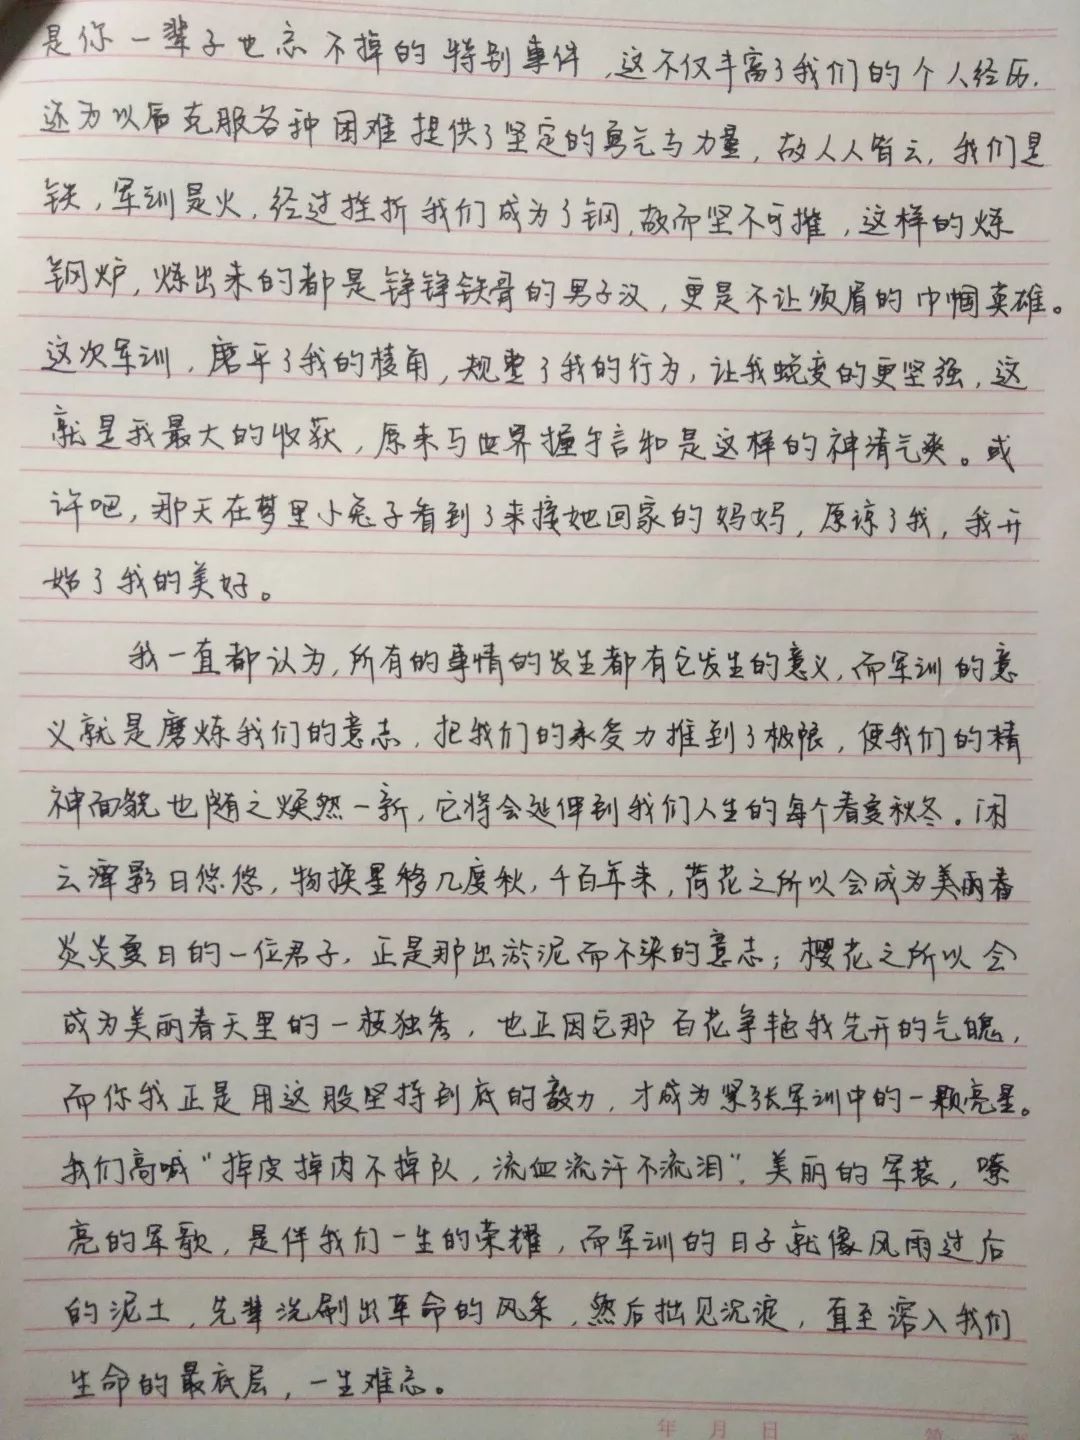 是你一辈子也忘不掉的特别事件,这不仅丰富了我们的个人经历,
还为以后克服各种困难提供了坚定的勇气与力量,故人人皆云,我们是
铁,军训是火,经过挫折我们成为了钢,故而坚不可摧,这样的炼
钢炉,炼出来的都是铮铮铁骨的男子汉,更是不让须眉的巾帼英雄。
这次军训,磨平了我的棱角,规整了我的行为,让我蜕变的更坚强,这
就是我最大的收获,原来与世界握手言和是这样的神清气爽。或
许吧,那天在梦里小兔子看到了来接她回家的妈妈,原谅了我,我开
始了我的美好。
我一直都认为,所有的事情的发生都有它发生的意义,而军训的意
义就是磨炼我们的意志,把我们的承受力推到了极限,使我们的精
神面貌也随之焕然一新,它将会延伸到我们人生的每个春夏秋冬。闲
云潭影日悠悠,物换星移几度秋,千百年来,荷花之所以会成为美丽春
炎炎夏日的一位君子,正是那出淤泥而不染的意志;樱花之所以会
成为美丽春天里的一枝独秀,也正因它那百花争艳我先开的气魄,
而你我正是用这股坚持到底的毅力,才成为紧张军训中的一颗亮星。
我们高喊“掉皮掉肉不掉队,流血流汗不流泪”,美丽的军装,嘹
亮的军歌,是伴我们一生的荣耀,而军训的日子就像风雨过后
的泥土,先辈洗刷出革命的风采,然后拙见沉淀,直至溶入我们
生命的最底层,一生难忘。
年 月 日 第